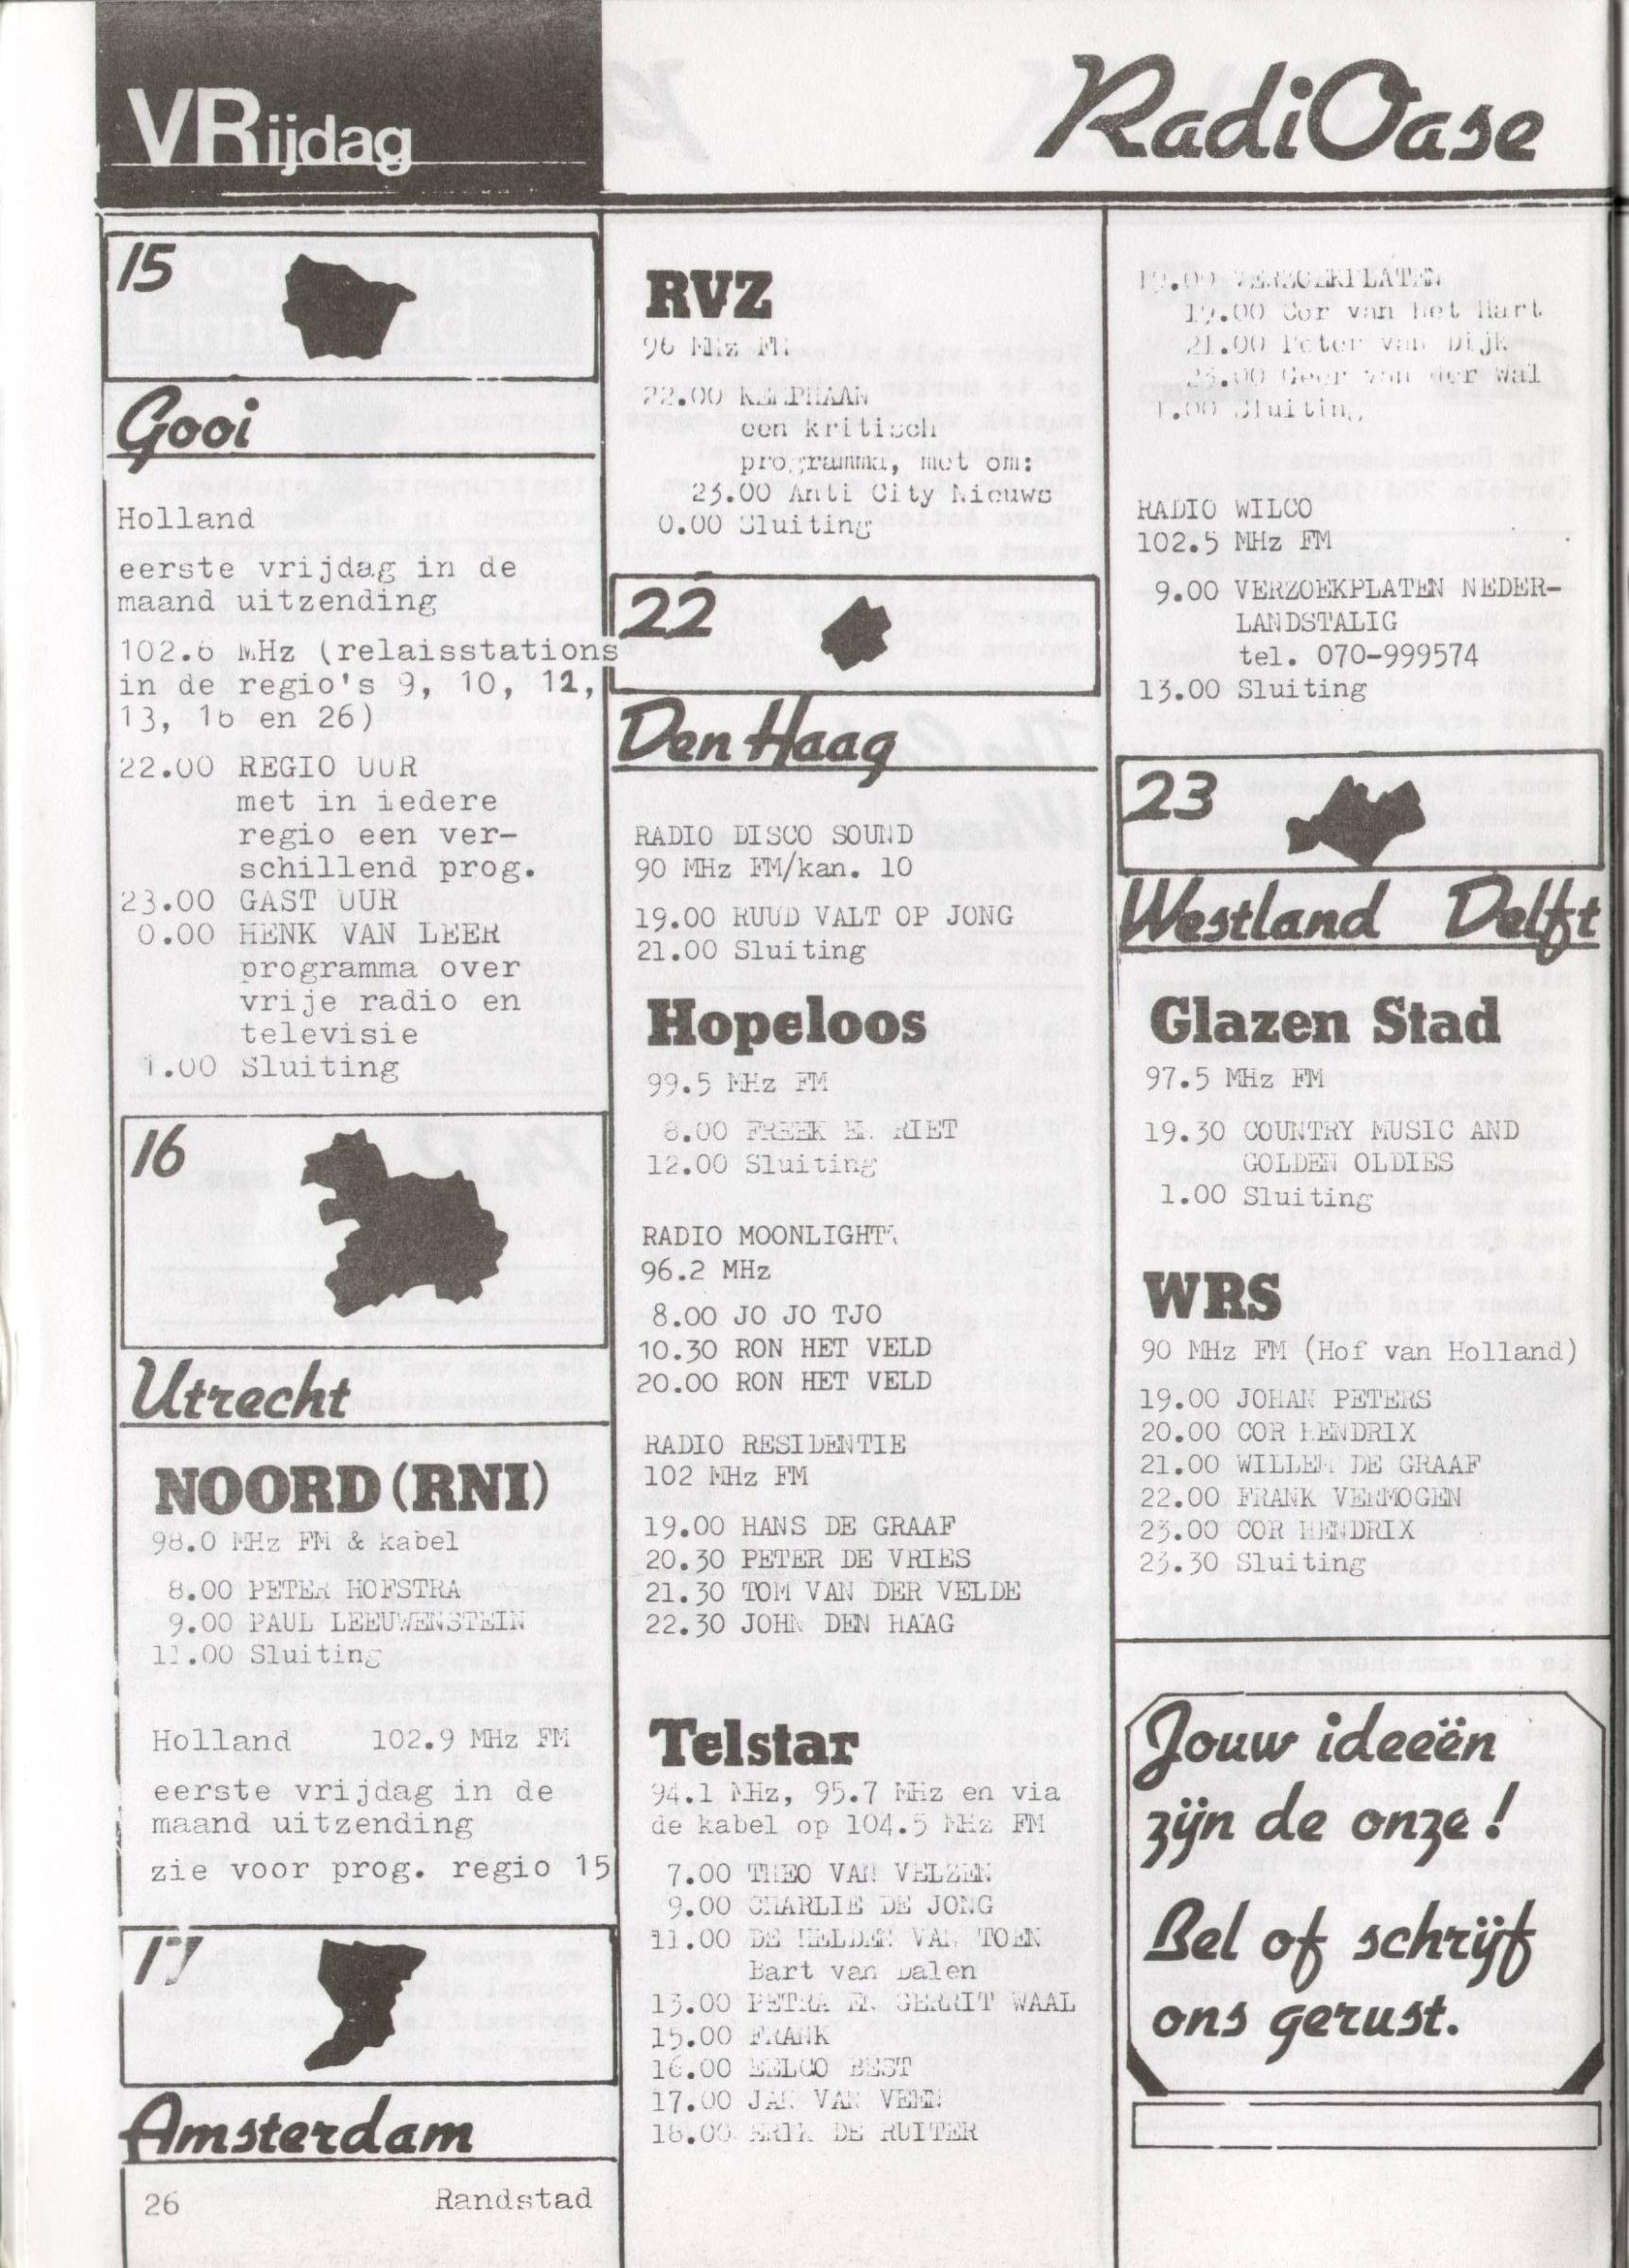 VRijdag
RadiOase
15
Gooi
Holland
eerste vrijdag in de
maand uitzending
102.6 MHz (relaisstations
in de regio's 9, 10, 11,
13, 16 en 26)
22.00 REGIO UUR
met in iedere
regio een ver-
schillend prog.
23.00 GAST UUR
0.00 HENK VAN LEER
programma over
vrije radio en
televisie
1.00 Sluiting
16
Utrecht
NOORD (RNI)
98.0 MHz FM & kabel
8.00 PETER HOFSTRA
9.00 PAUL LEEUWENSTEIN
11.00 Sluiting
Holland 102.9 MHz FM
eerste vrijdag in de
maand uitzending
zie voor prog. regio 15
17
Amsterdam
26 Randstad
RVZ
96 MHz FM
22.00 KEMPHAAN
een kritisch
programma, met om:
23.00 Anti City Nieuws
0.00 Sluiting
22
Den Haag
RADIO DISCO SOUND
90 MHz FM/kan. 10
19.00 RUUD VALT OP JONG
21.00 Sluiting
Hopeloos
99.5 MHz FM
8.00 FREEK EN RIET
12.00 Sluiting
RADIO MOONLIGHT
96.2 MHz
8.00 JO JO TJO
10.30 RON HET VELD
20.00 RON HET VELD
RADIO RESIDENTIE
102 MHz FM
19.00 HANS DE GRAAF
20.30 PETER DE VRIES
21.30 TOM VAN DER VELDE
22.30 JOHN DEN HAAG
Telstar
94.1 MHz, 95.7 MHz en via
de kabel op 104.5 MHz FM
7.00 THEO VAN VELZEN
9.00 CHARLIE DE JONG
11.00 DE HELDEN VAN TOEN
Bart van Dalen
13.00 PETRA EN GERRIT WAAL
15.00 FRANK
16.00 EELCO BEST
17.00 JAN VAN VEEN
18.00 ERIK DE RUITER
19.00 VERZOEKPLATEN
19.00 Cor van het Hart
21.00 Peter van Dijk
23.00 Geer van der Wal
1.00 Sluiting
RADIO WILCO
102.5 MHz FM
9.00 VERZOEKPLATEN NEDER-
LANDSTALIG
tel. 070-999574
13.00 Sluiting
23
Westland Delft
Glazen Stad
97.5 MHz FM
19.30 COUNTRY MUSIC AND
GOLDEN OLDIES
1.00 Sluiting
WRS
90 MHz FM (Hof van Holland)
19.00 JOHAN PETERS
20.00 COR HENDRIX
21.00 WILLEM DE GRAAF
22.00 FRANK VERMOGEN
23.00 COR HENDRIX
23.30 Sluiting
Jouw ideeën
zijn de onze!
Bel of schrijf
ons gerust.